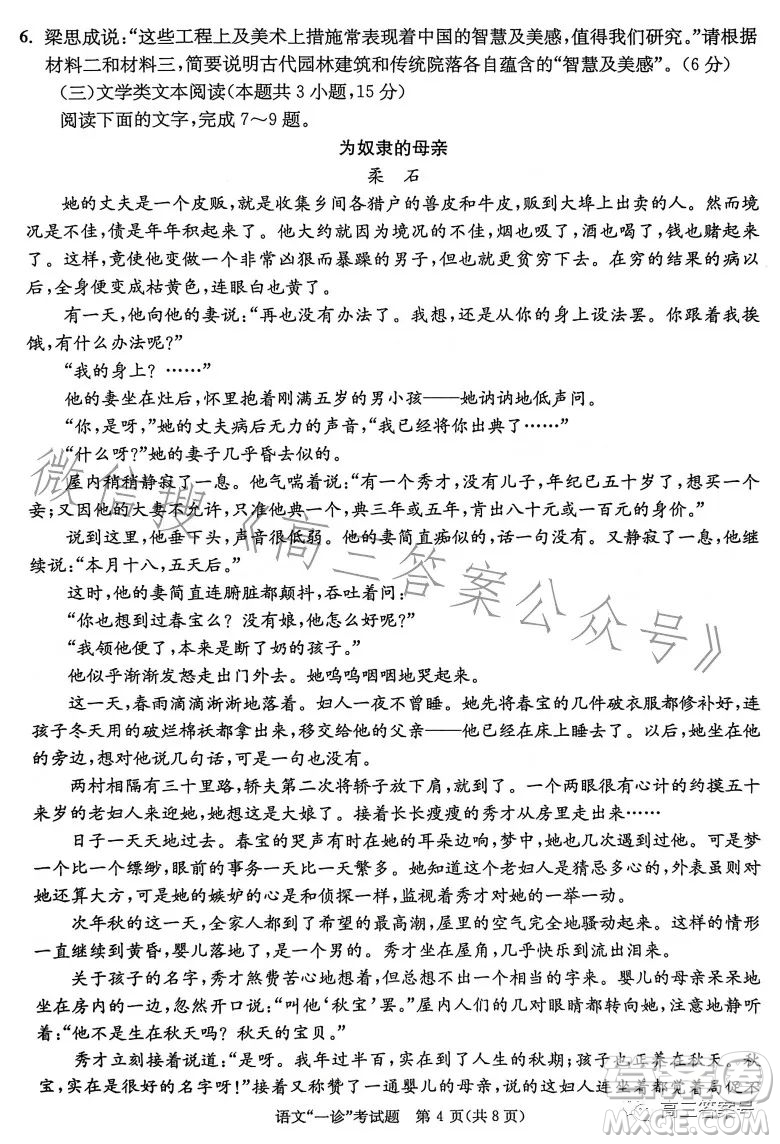 6. 梁思成说:“这些工程上及美术上措施常表现着中国的智慧及美感,值得我们研究。”请根据
材料二和材料三,简要说明古代园林建筑和传统院落各自蕴含的“智慧及美感”。(6分)
(三)文学类文本阅读(本题共3小题,15分)
阅读下面的文字,完成7～9题。
为奴隶的母亲
柔 石
她的丈夫是一个皮贩,就是收集乡间各猎户的兽皮和牛皮,贩到大埠上出卖的人。然而境
况是不佳,债是年年积起来了。他大约就因为境况的不佳,烟也吸了,酒也喝了,钱也赌起来
了。这样,竟使他变做一个非常凶狠而暴躁的男子,但也就更贫穷下去。在穷的结果的病以
后,全身变成枯黄色,连眼白也黄了。
有一天,他向他的妻说:“再也没有办法了。我想,还是从你的身上设法罢。你跟着我挨
饿,有什么办法呢?”
“我的身上?……”
他的妻坐在灶后,怀里抱着刚满五岁的男小孩——她讷讷地低声问。
“你,是呀,”她的丈夫病后无力的声音,“我已经将你出典了……”
“什么呀?”她的妻子几乎昏去似的。
屋内稍稍静寂了一息。他气喘着说:“有一个秀才,没有儿子,年纪已五十岁了,想买一个
妾;又因他的大妻不允许,只准他典一个,典三年或五年,肯出八十元或一百元的身价。”
说到这里,他垂下头,声音很低弱。他的妻简直痴似的,话一句没有。又静寂了一息,他继
续说:“本月十八,五天后。”
这时,他的妻简直连腑脏都颤抖,吞吐着问:
“你也想到过春宝么?没有娘,他怎么好呢?”
“我领他便了,本来是断了奶的孩子。”
他似乎渐渐发怒走出门外。她呜呜咽咽地哭起来。
这一天,春雨淅淅沥沥地落着。妇人一夜不曾睡。她先将春宝的几件破衣服都修补好,连
孩子冬天用的破烂棉袄都拿出来,移交给他的父亲——他已经在床上睡去了。以后,她坐在他
的旁边,想对他说几句话,可是没有。
两村相隔有三十里路,轿夫第二次将轿子放下肩,就到了。一个两眼很有心计的约摸五十
来岁的老妇人来迎她,她想这是大娘了。接着长长瘦瘦的秀才从房里走出来……
日子一天天地过去。春宝的哭声有时在她的耳朵边响,梦中,她也几次遇到过他。可是梦
一个比一个缥缈,眼前的事务一天比一天繁多。她知道这个老妇人是猜忌多心的,外表虽则对
她还算大方,可是她的嫉妒的心是和侦探一样,监视着秀才对她的一举一动。
次年秋的这一天,全家人都到了希望的最高潮,屋里的空气完全地骚动起来。这样的情形
一直继续到黄昏,婴儿落地了,是男的。秀才坐在屋角,几乎快乐到流出泪来。
关于孩子的名字,秀才煞费苦心地想着,但总想不出一个相当的字来。婴儿的母亲呆呆地
坐在房内的一边,忽然开口说:“叫他‘秋宝’罢。”屋内人们的几对眼睛都转向她,注意地静听
着:“他不是生在秋天吗?秋天的宝贝。”
秀才立刻接着说道:“是呀。我年过半百,实在到了人生的秋期;孩子也正养在秋天。秋
宝,实在是很好的名字呀!”接着又称赞了一通婴儿的母亲。在场者都觉着局促不
语文“一诊”考试题 第4页(共8页)
微信搜《高三答案公众号》
高三答案号